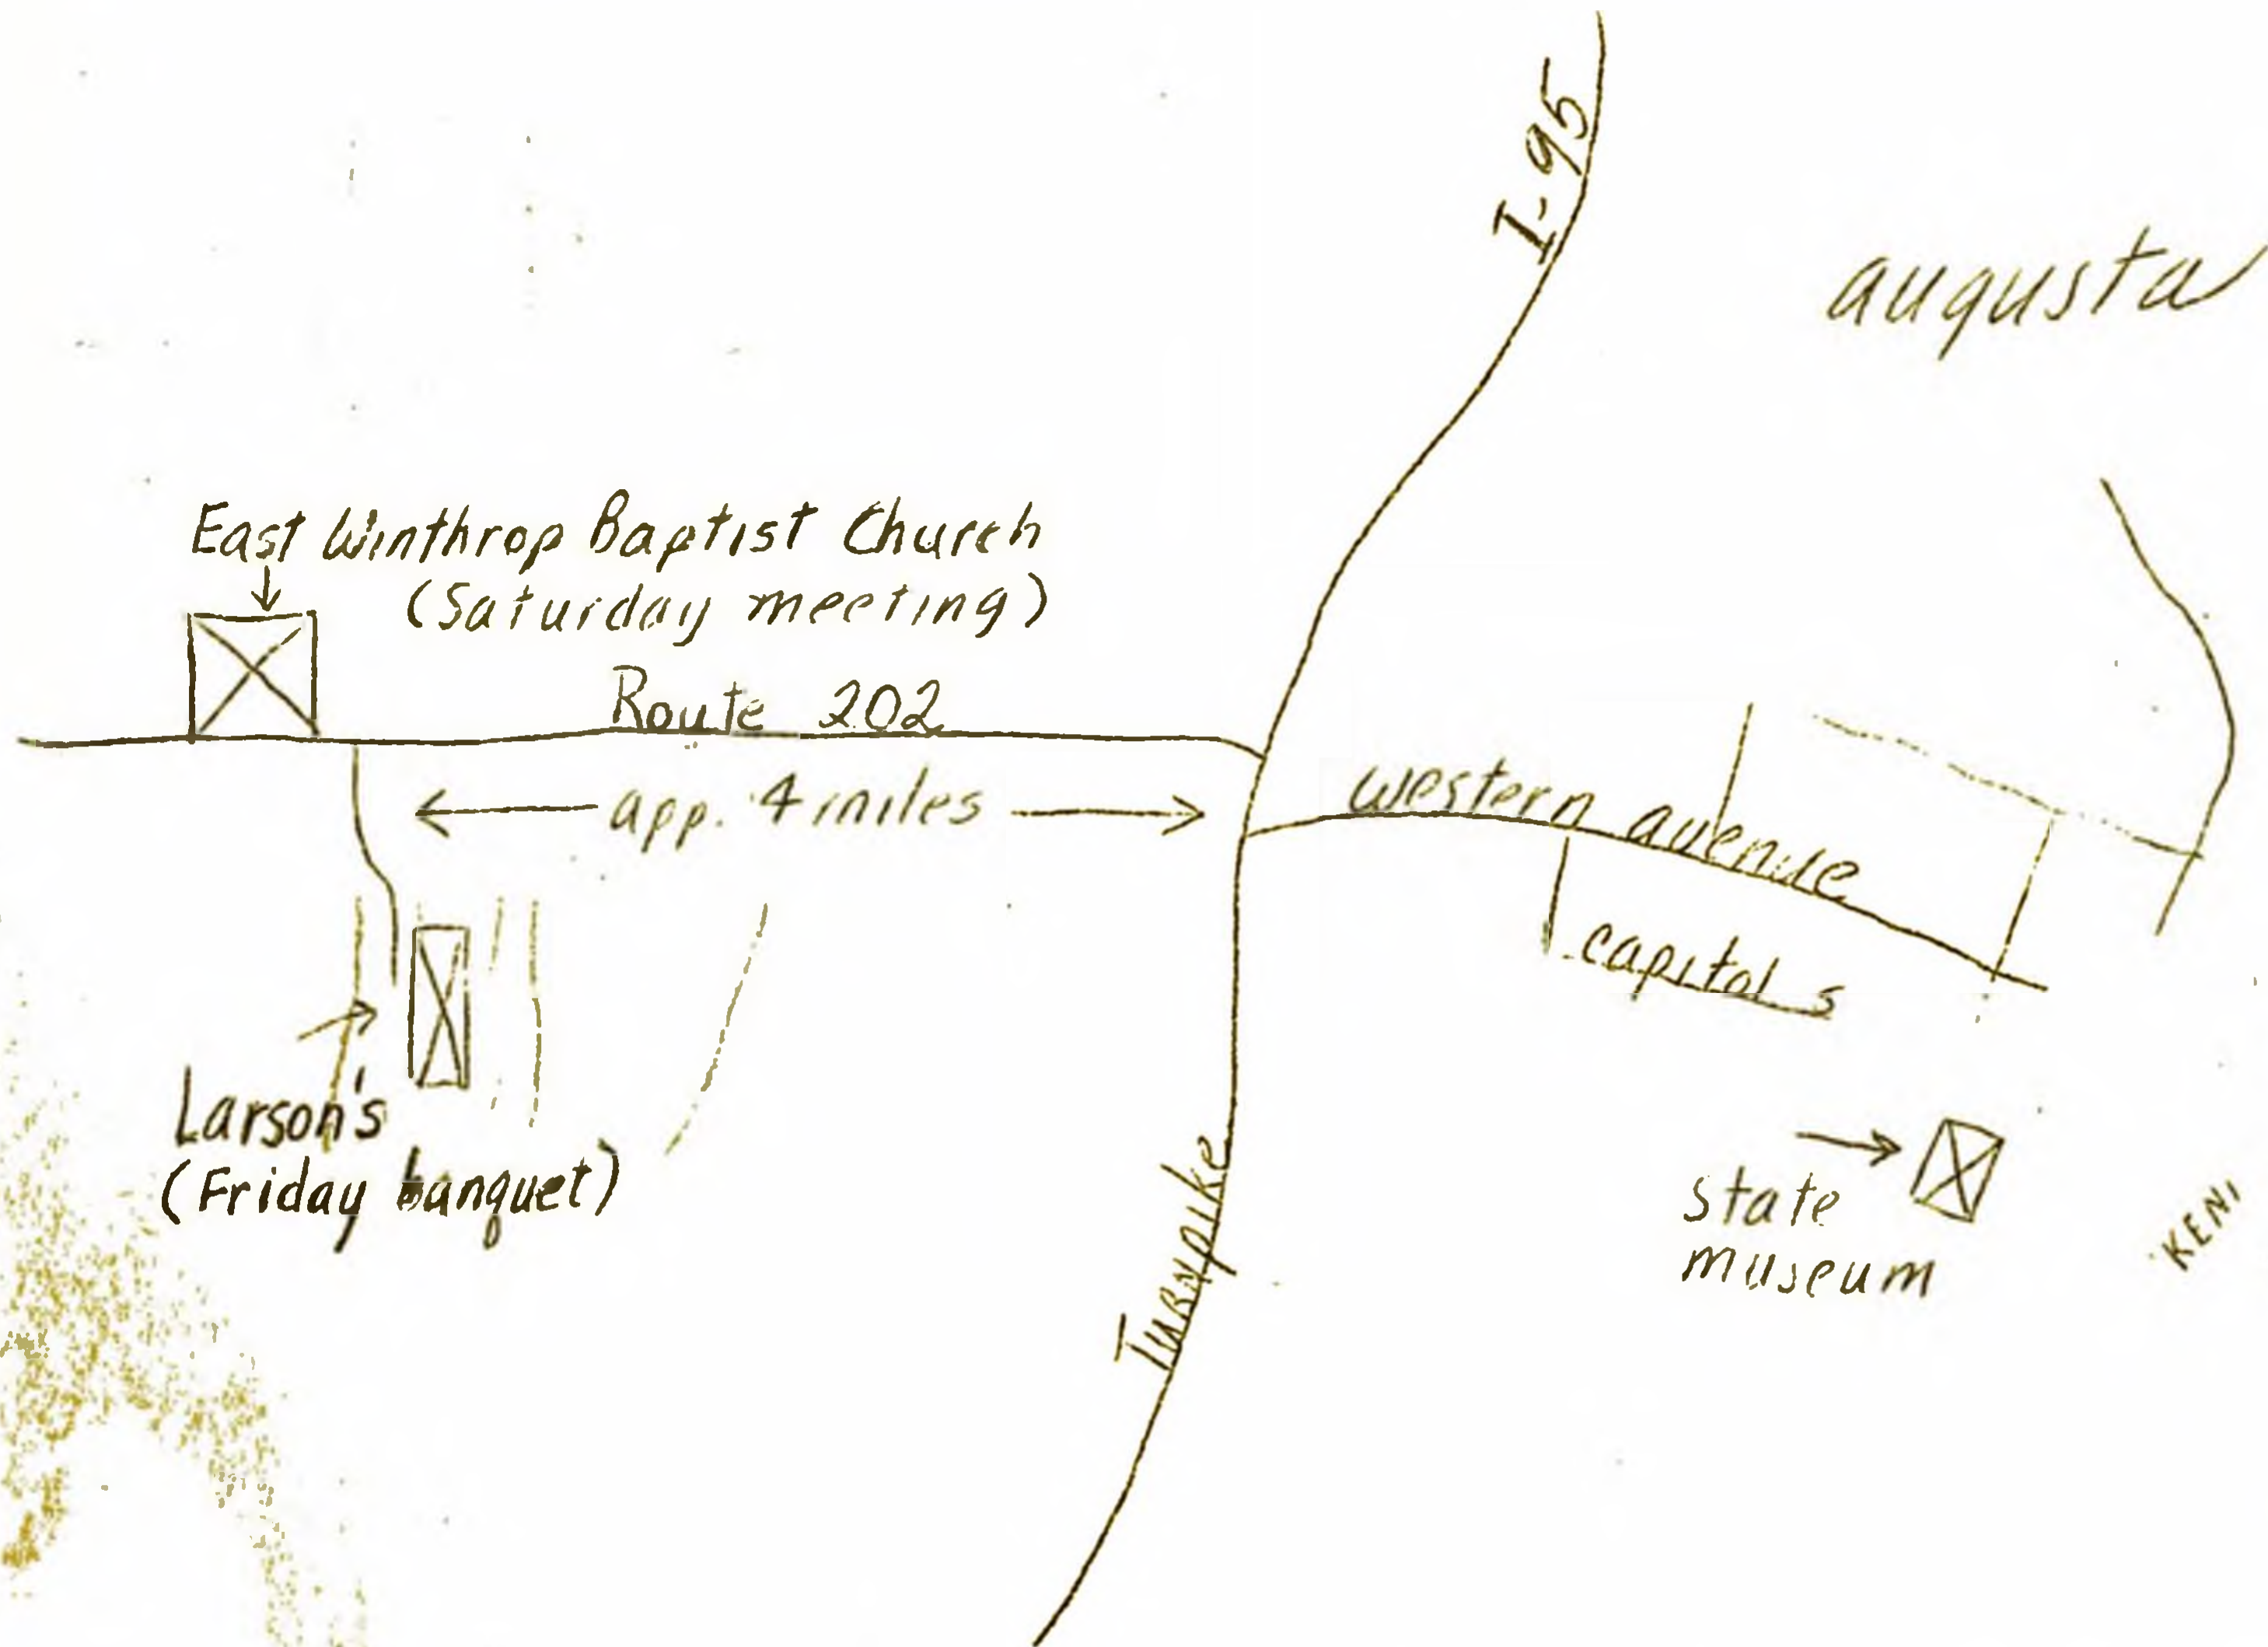 I-95
augusta
East Winthrop Baptist Church
(Saturday meeting)
Route 202
app. 4 miles
western avenue
capitol s
Larson's
(Friday banquet)
Turnpike
state
museum
KEN